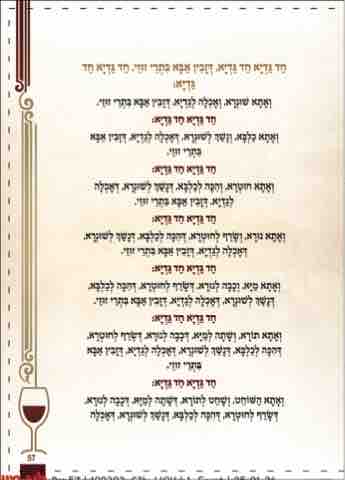 חַד גַּדְיָא חַד גַּדְיָא, דְּזַבִּין אַבָּא בִּתְרֵי זוּזֵי, חַד גַּדְיָא חַד
גַּדְיָא:
וְאָתָא שׁוּנְרָא, וְאָכְלָה לְגַדְיָא, דְּזַבִּין אַבָּא בִּתְרֵי זוּזֵי,
חַד גַּדְיָא חַד גַּדְיָא:
וְאָתָא כַלְבָּא, וְנָשַׁךְ לְשׁוּנְרָא, דְּאָכְלָה לְגַדְיָא, דְּזַבִּין אַבָּא
בִּתְרֵי זוּזֵי,
חַד גַּדְיָא חַד גַּדְיָא:
וְאָתָא חוּטְרָא, וְהִכָּה לְכַלְבָּא, דְּנָשַׁךְ לְשׁוּנְרָא, דְּאָכְלָה
לְגַדְיָא, דְּזַבִּין אַבָּא בִּתְרֵי זוּזֵי,
חַד גַּדְיָא חַד גַּדְיָא:
וְאָתָא נוּרָא, וְשָׂרַף לְחוּטְרָא, דְּהִכָּה לְכַלְבָּא, דְּנָשַׁךְ לְשׁוּנְרָא,
דְּאָכְלָה לְגַדְיָא, דְּזַבִּין אַבָּא בִּתְרֵי זוּזֵי,
חַד גַּדְיָא חַד גַּדְיָא:
וְאָתָא מַיָּא, וְכָבָה לְנוּרָא, דְּשָׂרַף לְחוּטְרָא, דְּהִכָּה לְכַלְבָּא,
דְּנָשַׁךְ לְשׁוּנְרָא, דְּאָכְלָה לְגַדְיָא, דְּזַבִּין אַבָּא בִּתְרֵי זוּזֵי,
חַד גַּדְיָא חַד גַּדְיָא:
וְאָתָא תוֹרָא, וְשָׁתָה לְמַיָּא, דְּכָבָה לְנוּרָא, דְּשָׂרַף לְחוּטְרָא,
דְּהִכָּה לְכַלְבָּא, דְּנָשַׁךְ לְשׁוּנְרָא, דְּאָכְלָה לְגַדְיָא, דְּזַבִּין אַבָּא
בִּתְרֵי זוּזֵי,
חַד גַּדְיָא חַד גַּדְיָא:
וְאָתָא הַשּׁוֹחֵט, וְשָׁחַט לְתוֹרָא, דְּשָׁתָה לְמַיָּא, דְּכָבָה לְנוּרָא,
דְּשָׂרַף לְחוּטְרָא, דְּהִכָּה לְכַלְבָּא, דְּנָשַׁךְ לְשׁוּנְרָא, דְּאָכְלָה
57